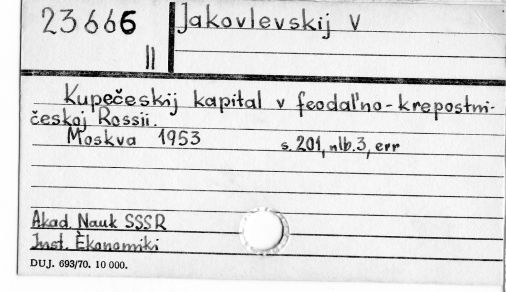 23666
II
Jakovlevskij V
Kupečeskij kapital v feodal'no-krepostni-
českoj Rossii.
Moskva 1953 s. 201, nlb. 3, err
Akad. Nauk SSSR
Inst. Èkonomiki
DUJ. 693/70. 10 000.